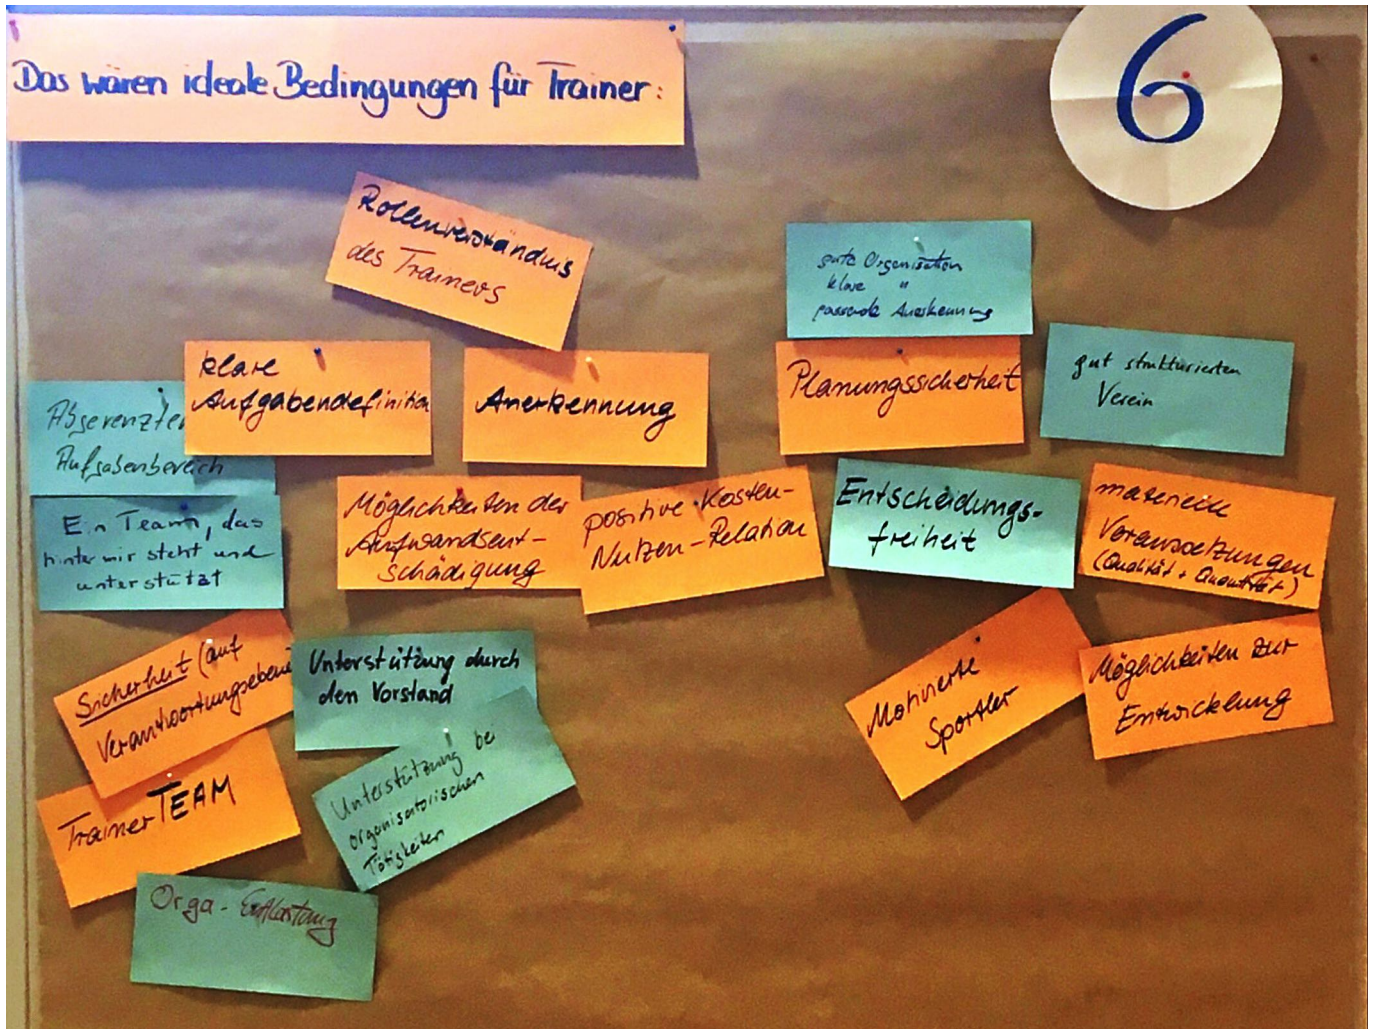 Das wären ideale Bedingungen für Trainer:
6
Rollenverständnis
des Trainers
gute Organisation
klare "
passende Anerkennung
klare
Aufgabendefinition
Anerkennung
Planungssicherheit
gut strukturierten
Verein
Abgerenzter
Aufgabenbereich
Ein Team, das
hinter mir steht und
unterstützt
Möglichkeiten der
Aufwandsent-
schädigung
positive Kosten-
Nutzen-Relation
Entscheidungs-
freiheit
materielle
Voraussetzungen
(Qualität + Quantität)
Sicherheit (auf
Verantwortungsebene
Unterstützung durch
den Vorstand
Motivierte
Sportler
Möglichkeiten zur
Entwicklung
TrainerTEAM
Unterstützung bei
organisatorischen
Tätigkeiten
Orga-Entlastung